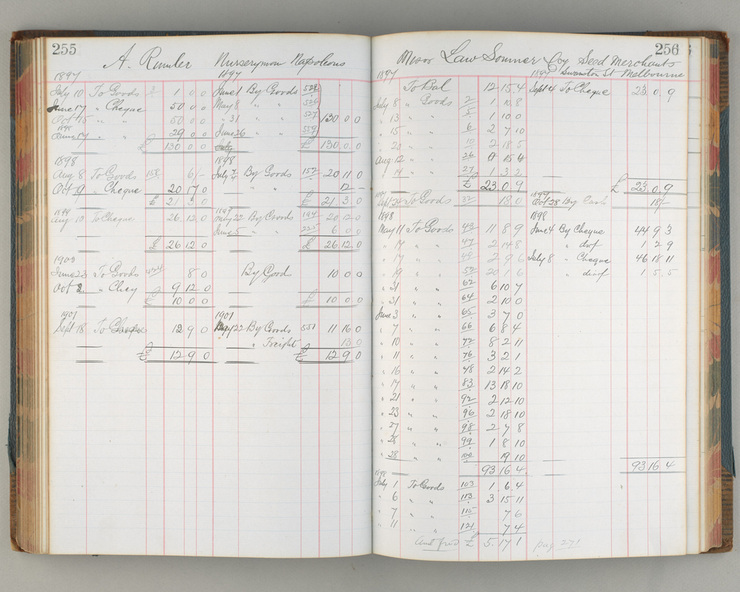 255
A. Rumler Nurserymon Napoleons
1897 1897
July 10 To Goods 2 1 0 0 June 1 By Goods 528
June 17 " Cheque 50 0 0 May 8 " " 526
Oct 15 " " 50 0 0 " 31 " " 527 130 0 0
1898
June 17 " " 29 0 0 June 26 " " 528
130 0 0 £ 130 0 0
1898 1898
Aug 8 To Goods 153 6/- July 2 By Goods 157 20 11 0
Oct 9 " Cheque 20 17 0 " " 12 -
£ 21 3 0 £ 21 3 0
Aug 10 To Cheque 26 12 0 22 By Goods 194 20 12 0
June 5 " " 225 6 0 0
£ 26 12 0 £ 26 12 0
1900
June 23 To Goods 8 0 By Good 10 0 0
Oct 2 " Cheq 9 12 0
£ 10 0 0 £ 10 0 0
1901 1901
Sept 18 To Cheque 12 9 0 22 By Goods 551 11 16 0
" Freight 13 0
£ 12 9 0 £ 12 9 0
256
Messrs Law Somner Coy Seed Merchants
1897 1897 Swanston St Melbourne
To Bal 12 15 4 Sept 4 To Cheque 23 0 9
July 8 " Goods 2 1 10 8
" 13 " " 1 10 0
" 15 " " 6 2 7 10
" 20 " " 10 2 18 5
Aug 12 " " 26 15 4
" 14 " " 27 1 3 2
£ 23 0 9 £ 23 0 9
1897 1897
Sept 20 To Goods 18 0 Oct 28 By Cash 18/-
1898 1898
May 11 To Goods 43 11 8 9 June 4 By Cheque 44 9 3
" 14 " " 47 2 14 8 " disf 1 2 9
" 17 " " 2 9 6 July 8 " Cheque 46 18 11
" 19 " " 52 20 1 6 " disf 1 5 5
" 31 " " 62 6 10 7
" 31 " " 64 2 10 0
June 3 " " 65 3 7 0
" 7 " " 66 6 8 4
" 10 " " 72 8 2 11
" 11 " " 76 3 2 1
" 16 " " 48 2 14 2
" 17 " " 83 13 18 10
" 21 " " 92 2 12 10
" 23 " " 96 2 18 10
" 27 " " 98 2 7 8
" 28 " " 99 1 8 10
" 28 " " 100 19 10
93 16 4 93 16 4
1898
July 1 To Goods 107 1 6 4
" 6 " " 113 3 15 11
" 7 " " 115 7 6
" 11 " " 121 7 4
£ 5 17 1 page 271